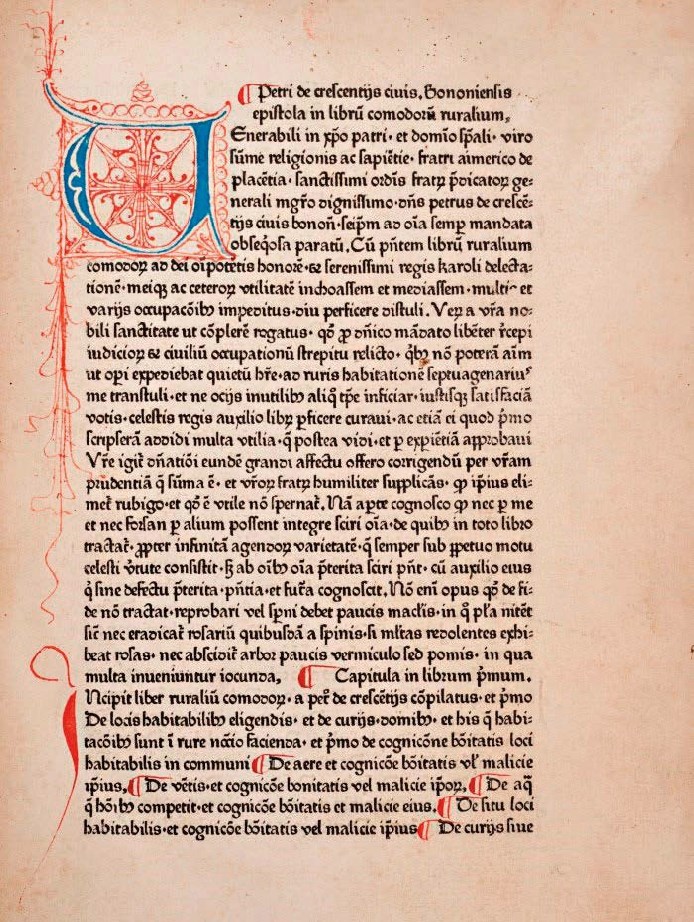 Petri de crescentijs ciuis. Bononiensis
epistola in librū comodorū ruralium.
VEnerabili in xp̄o patri· et domīo sp̄ali· viro
sūme religionis ac sapiētie· fratri aimerico de
placētia· sanctissimi ordīs fratrꝝ p̄dicatoꝝ ge⸗
nerali mgr̄o dignissimo· dn̄s petrus de crescē⸗
tijs ciuis bonoñ· seip̄m ad oīa semꝑ mandata
obseq̄osa paratū. Cū p̄ntem librū ruralium
comodoꝝ ad dei oīpotētis honorē· ꝛ serenissimi regis karoli delecta⸗
tionē· meiqꝫ ac ceteroꝝ vtilitatē inchoassem et mediassem· multis et
varijs occupacōibꝫ impeditus· diu perficere distuli. Veꝝ a vr̄a no⸗
bili sanctitate ut cōplerē rogatus· qd̄ ꝓ dn̄ico mādato libēter r̄cepi
iudicioꝝ ꝛ ciuiliū occupationū strepitu relicto· qͥbꝫ nō poterā aīm
ut opi expediebat quietū hr̄e· ad ruris habitationē septuagenariuˢ
me transtuli· et ne ocijs inutilibꝫ aliq̄ tp̄e inficiar· iustisqꝫ satisfaciā
votis· celestis regis auxilio libꝝ ꝑficere curaui· ac etiā ei quod pͥmo
scripserā addidi multa vtilia· q̄ postea vidi· et ꝑ exp̄iētiā approbaui
Vr̄e igit᷑ dn̄atiōi eundē grandi affectu offero corrigendū per vr̄am
prudentiā q̄ sūma ē· et vr̄oꝝ fratꝝ humiliter supplicās· ꝙ ip̄ius eli⸗
met᷑ rubigo· et qd̄ ē vtile nō spernat᷑. Nā aꝑte cognosco ꝙ nec ꝑ me
et nec forsan ꝑ alium possent integre sciri oīa· de quibꝫ in toto libro
tractat᷑· ꝓpter infinitā agendoꝝ varietatē· q̄ semper sub ꝑpetuo motu
celesti v̄tute consistit· sꝫ ab oībꝫ oīa p̄terita sciri pn̄t· cū auxilio eius
qͥ sine defectu p̄terita· pn̄tia· et fut᷑a cognoscit. Nō enī opus qd̄ de fi⸗
de nō tractat· reprobari vel sp̄ni debet paucis maclis· in q̄ pl᷑a nitēt
sic̄ nec eradicat᷑ rosariū quibusdā a spinis· si ml᷑tas redolentes exhi⸗
beat rosas· nec abscidit᷑ arbor paucis vermiculo sed pomis· in qua
multa inueniuntur iocunda. ¶ Capitula in librum pͥmum.
INcipit liber ruraliū comodoꝝ· a pet᷑ de crescētijs cōpilatus· et pͥmo
De locis habitabilibꝫ eligendis· et de curijs· domibꝫ· et his q̄ habi⸗
tacōibꝫ sunt ī rure nc̄cio facienda· et pͥmo de cognicōne bōitatis loci
habitabilis in communi ¶ De aere et cognicōe bōitatis vl᷑ malicie
ip̄ius. ¶ De vētis· et cognicōe bonitatis vel malicie ip̄oꝝ. ¶ De aq̄
q̄ hōībꝫ competit· et cognicōe bōitatis et malicie eius. ¶ De situ loci
habitabilis· et cognicōe bōitatis vel malicie ip̄ius ¶ De curijs siue